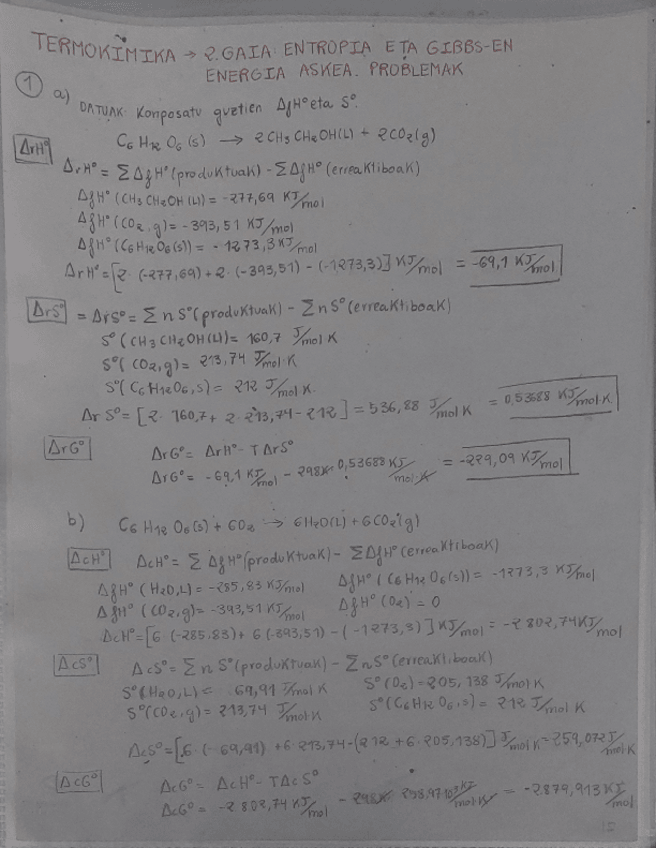 TERMOKIMIKA → 2.GAIA: ENTROPIA ETA GIBBS-EN
ENERGIA ASKEA. PROBLEMAK
① a) DATUAK: Konposatu guztien ΔfH° eta S°.
C6H12O6(s) → 2CH3CH2OH(L) + 2CO2(g)
ΔrH°
ΔrH° = ΣΔfH°(produktuak) - ΣΔfH°(erreaktiboak)
ΔfH°(CH3CH2OH(L)) = -277,69 KJ/mol
ΔfH°(CO2,g) = -393,51 KJ/mol
ΔfH°(C6H12O6(s)) = -1273,3 KJ/mol
ΔrH° = [2·(-277,69) + 2·(-393,51) - (-1273,3)] KJ/mol = -69,1 KJ/mol
ΔrS° = ΔrS° = Σn S°(produktuak) - Σn S°(erreaktiboak)
S°(CH3CH2OH(L)) = 160,7 J/mol K
S°(CO2,g) = 213,74 J/mol·K
S°(C6H12O6,s) = 212 J/mol·K.
ΔrS° = [2·160,7 + 2·213,74 - 212] = 536,88 J/mol K = 0,53688 KJ/mol·K
ΔrG° ΔrG° = ΔrH° - TΔrS°
ΔrG° = -69,1 KJ/mol - 298K·0,53688 KJ/mol·K = -229,09 KJ/mol
b) C6H12O6(s) + 6O2 → 6H2O(L) + 6CO2(g)
ΔcH° ΔcH° = ΣΔfH°(produktuak) - ΣΔfH°(erreaktiboak)
ΔfH°(H2O,L) = -285,83 KJ/mol ΔfH°(C6H12O6(s)) = -1273,3 KJ/mol
ΔfH°(CO2,g) = -393,51 KJ/mol ΔfH°(O2) = 0
ΔcH° = [6·(-285.83) + 6(-393,51) - (-1273,3)] KJ/mol = -2802,74 KJ/mol
ΔcS° ΔcS° = Σn S°(produktuak) - Σn S°(erreaktiboak)
S°(H2O,L) = 69,91 J/mol K S°(O2) = 205,138 J/mol K
S°(CO2,g) = 213,74 J/mol K S°(C6H12O6,s) = 212 J/mol·K
ΔcS° = [6·(-69,91) + 6·213,74 - (212 + 6·205,138)] J/mol K = 259,072 J/mol·K
ΔcG° ΔcG° = ΔcH° - TΔcS°
ΔcG° = -2802,74 KJ/mol - 298K· KJ/mol·K = -2879,913 KJ/mol
15